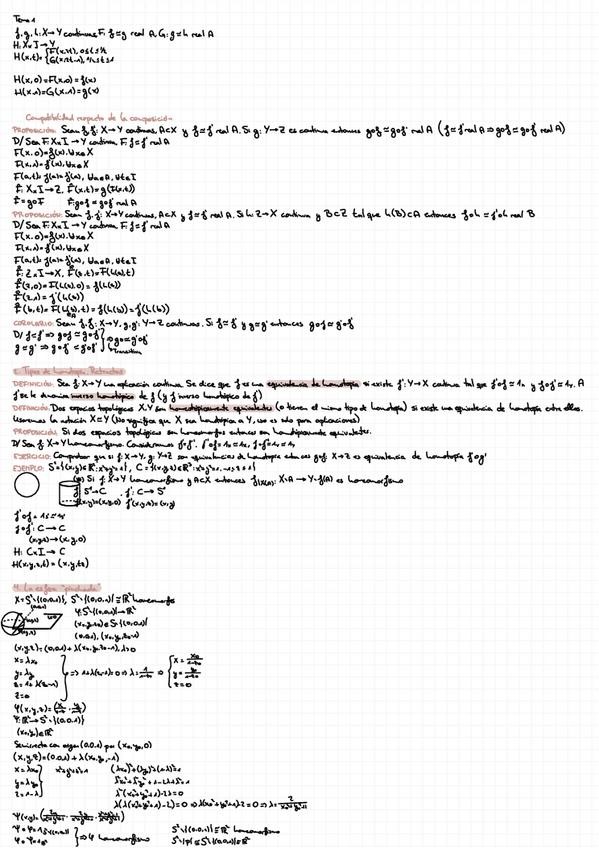 Tema 1
f, g, h: X→Y continuas F: f≃g rel A, G: g≃h rel A
H: X×I→Y
H(x,t)= {F(x,2t), 0≤t≤½
G(x,2t-1), ½≤t≤1
H(x,0)=F(x,0)=f(x)
H(x,1)=G(x,1)=
Compatibilidad respecto de la composición
PROPOSICIÓN: Sean f, f': X→Y continuas, A⊂X y f≃f' rel A. Si g: Y→Z es continua entonces g∘f≃g∘f' rel A (f≃f' rel A ⇒ g∘f≃g∘f' rel A)
D/ Sea F: X×I→Y continua, F: f≃f' rel A
F(x,0)=f(x), ∀x∈X
F(x,1)=f'(x), ∀x∈X
F(a,t)=f(a)=f'(a), ∀a∈A, ∀t∈I
F̂: X×I→Z, F̂(x,t)=g(F(x,t))
F̂=g∘F F̂: g∘f≃g∘f' rel A
PROPOSICIÓN: Sean f, f': X→Y continuas, A⊂X y f≃f' rel A. Si h: Z→X continua y B⊂Z tal que h(B)⊂A entonces f∘h≃f'∘h rel B
D/ Sea F: X×I→Y continua, F: f≃f' rel A
F(x,0)=f(x), ∀x∈X
F(x,1)=f'(x), ∀x∈X
F(a,t)=f(a)=f'(a), ∀a∈A, ∀t∈I
F̂: Z×I→X, F̂(z,t)=F(h(z),t)
F̂(z,0)=F(h(z),0)=f(h(z))
F̂(z,1)=f'(h(z))
F̂(b,t)=F(h(b),t)=f(h(b))=f'(h(b))
COROLARIO: Sean f, f': X→Y, g, g': Y→Z continuas. Si f≃f' y g≃g' entonces g∘f≃g'∘f'
D/ f≃f' ⇒ g∘f≃g∘f'
g≃g' ⇒ g∘f'≃g'∘f'
Tipos de homotopía. Retractos
DEFINICIÓN: Sea f: X→Y una aplicación continua. Se dice que f es una equivalencia de homotopía si existe f': Y→X continua tal que f'∘f≃1x y f∘f'≃1y. A
f' se le denomina inverso homotópico de f (y f inverso homotópico de f')
DEFINICIÓN: Dos espacios topológicos X, Y son homotópicamente equivalentes (o tienen el mismo tipo de homotopía) si existe una equivalencia de homotopía entre ellos.
Usaremos la notación X≃Y (No significa que X sea homotópica a Y, eso es solo para aplicaciones)
PROPOSICIÓN: Si dos espacios topológicos son homeomorfos entonces son homotópicamente equivalentes.
D/ Sea f: X→Y homeomorfismo. Consideramos
EJERCICIO: Comprobar que si f: X→Y, g: Y→Z son equivalencias de homotopía entonces g∘f: X→Z es equivalencia de homotopía
EJEMPLO: S¹={(x,y)∈ℝ²: x²+y²=1}, C={(x,y,z)∈ℝ³: x²+y²=1, -1≤z≤1}
Si f: X→Y homeomorfismo y A⊂X entonces f|X\A: X\A→Y\f(A) es homeomorfismo
f: S¹→C f': C→S¹
f(x,y)=(x,y,0) f'(x,y,z)=(x,y)
f∘f': C→C
(x,y,z)→(x,y,0)
H: C×I→C
H(x,y,z,t)=(x,y,tz)
4. La esfera "pinchada"
X=S²\{(0,0,1)}, S²\{(0,0,1)}≅ℝ² homeomorfos
φ: S²\{(0,0,1)}→ℝ²
(x₀,y₀,z₀)∈S²\{(0,0,1)}
(x,y,z)=(0,0,1)+λ(x₀,y₀,z₀-1), λ>0
x=λx₀
y=λy₀
z=1+λ(z₀-1)
z=0
⇒ 1+λ(z₀-1)=0 ⇒ λ=1/(1-z₀) ⇒ {x=x₀/(1-z₀)
y=y₀/(1-z₀)
z=0
φ(x,y,z)=(x/(1-z), y/(1-z))
ψ: ℝ²→S²\{(0,0,1)}
(x₀,y₀)∈ℝ²
Semirrecta con origen (0,0,1) por (x₀,y₀,0)
(x,y,z)=(0,0,1)+λ(x₀,y₀,-1)
x=λx₀
y=λy₀
z=1-λ
x²+y²+z²=1
(λx₀)²+(λy₀)²+(1-λ)²=1
λ²x₀²+λ²y₀²+1-2λ+λ²=1
λ²(x₀²+y₀²+1)-2λ=0
λ(λ(x₀²+y₀²+1)-2)=0 ⇒ λ(x₀²+y₀²+1)-2=0 ⇒ λ=2/(x₀²+y₀²+1)
⇒ φ homeomorfismo
S²\{(0,0,1)}≅ℝ² homeomorfos